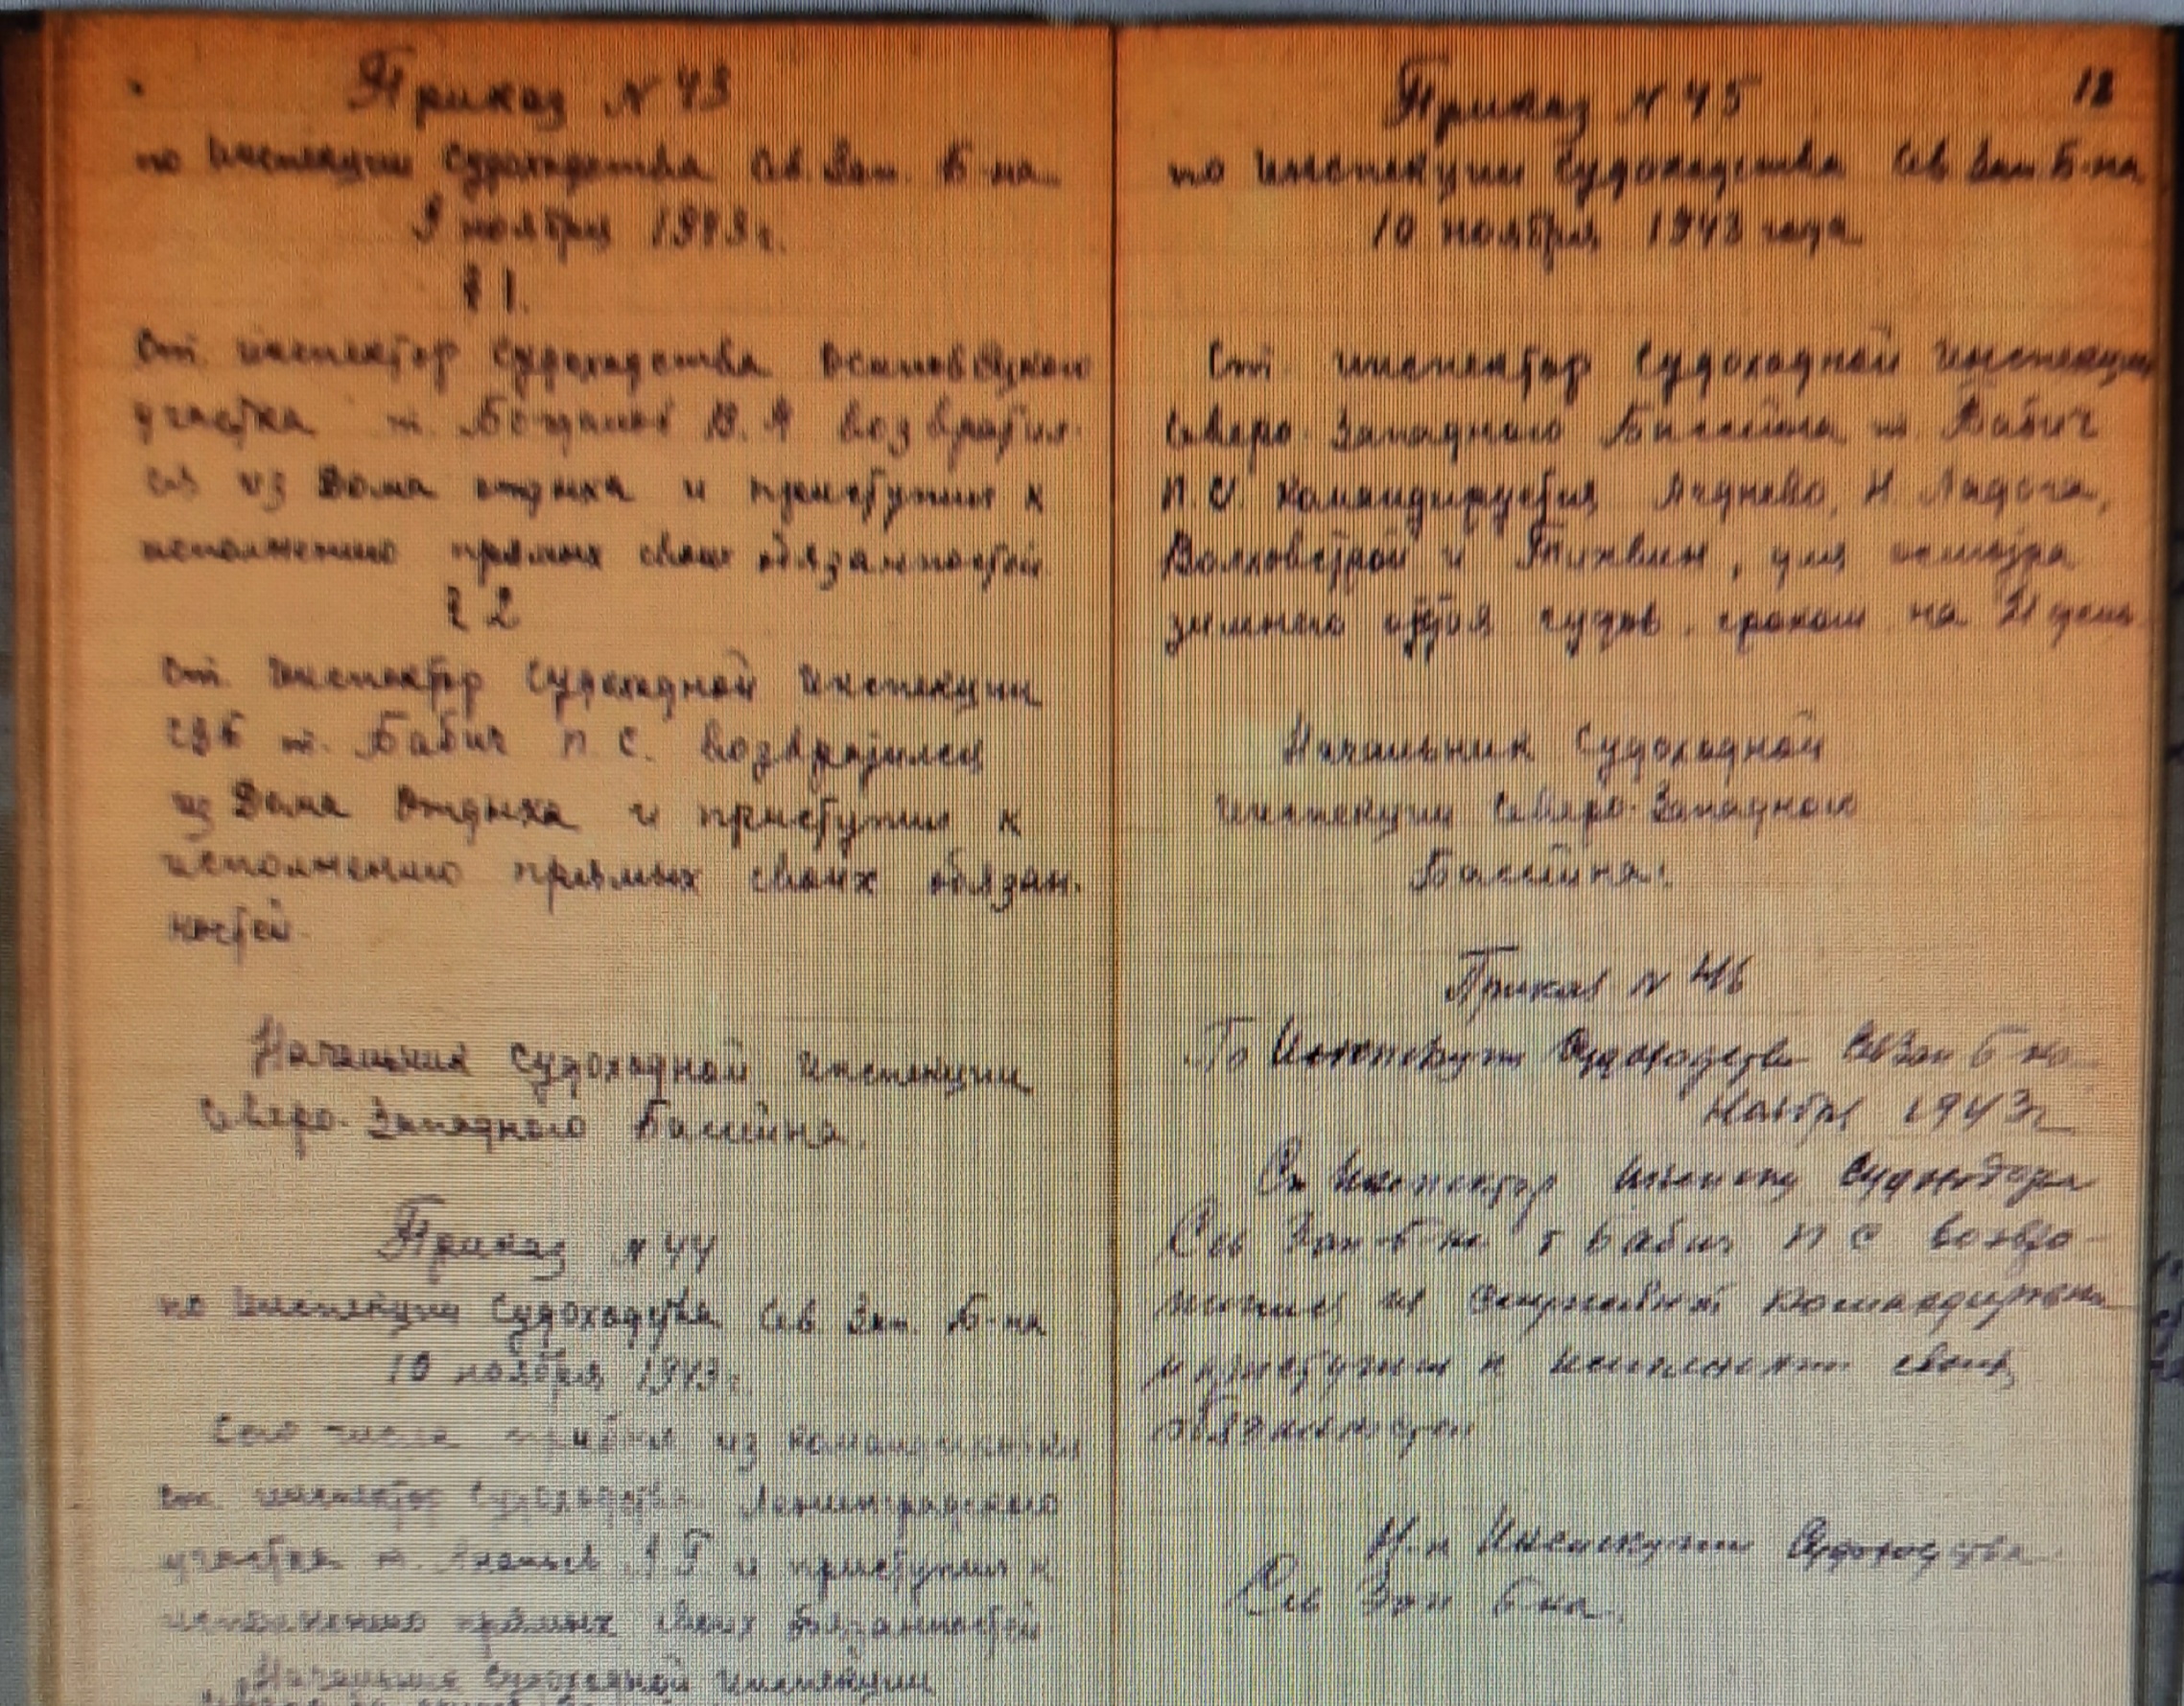 Приказ N 43
по инспекции судоходства Сев. Зап. Б-на
9 ноября 1943 г.
§ 1.
Ст. инспектор судоходства Осиновецкого
участка т. Богданов В. А возвратил-
ся из Дома отдыха и приступил к
исполнению прямых своих обязанностей
§ 2
Ст. инспектор Судоходной инспекции
СЗБ т. Бабич П. С. возвратился
из Дома Отдыха и приступил к
исполнению прямых своих обязан-
ностей.
Начальник Судоходной инспекции
Северо-Западного Бассейна.
Приказ N 44
по инспекции Судоходства Сев Зап. Б-на
10 ноября 1943 г.
Сего числа прибыл из командировки
ст. инспектор Судоходства Ленинградского
участка т. и приступил к
исполнению прямых своих обязанностей
Начальник Судоходной инспекции
12
Приказ N 45
по инспекции Судоходства Сев Зап. Б-на
10 ноября 1943 года
Ст. инспектор Судоходной инспекции
Северо-Западного Бассейна т. Бабич
П. С. командируется Леднево, Н. Ладога,
Волховстрой и Тихвин, для осмотра
зимнего отстоя судов. сроком на дней
Начальник Судоходной
инспекции Северо-Западного
Бассейна:
Приказ N 46
По Инспекции Судоходства Сев Зап Б-на
Ноября 1943 г
Ст Инспектор
Сев Зап Б-на т Бабич П С возвра-
тился из служебной командировки
и приступил к исполнению своих
обязанностей
Н-к Инспекции Судоходства
Сев Зап Б-на.